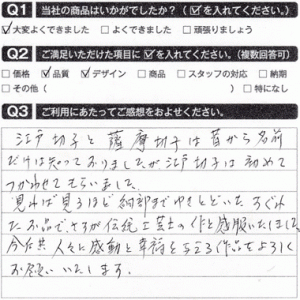 Q1 当社の商品はいかがでしたか？（☑を入れてください。）
☑大変よくできました □よくできました □頑張りましょう
Q2 ご満足いただけた項目に☑を入れてください。（複数回答可）
□価格 ☑品質 ☑デザイン □商品 □スタッフの対応 □納期
□その他（ ） □特になし
Q3 ご利用にあたってご感想をおよせください。
江戸切子と薩摩切子は昔から名前
だけは知っておりましたが江戸切子は初めて
つかわせてもらいました。
見れば見るほど細部までゆきとどいたすぐれ
たお品で、さすが伝統工芸士の作と感服いたしました
今后共人々に感動と幸福を与える作品をよろしく
お願いいたします。